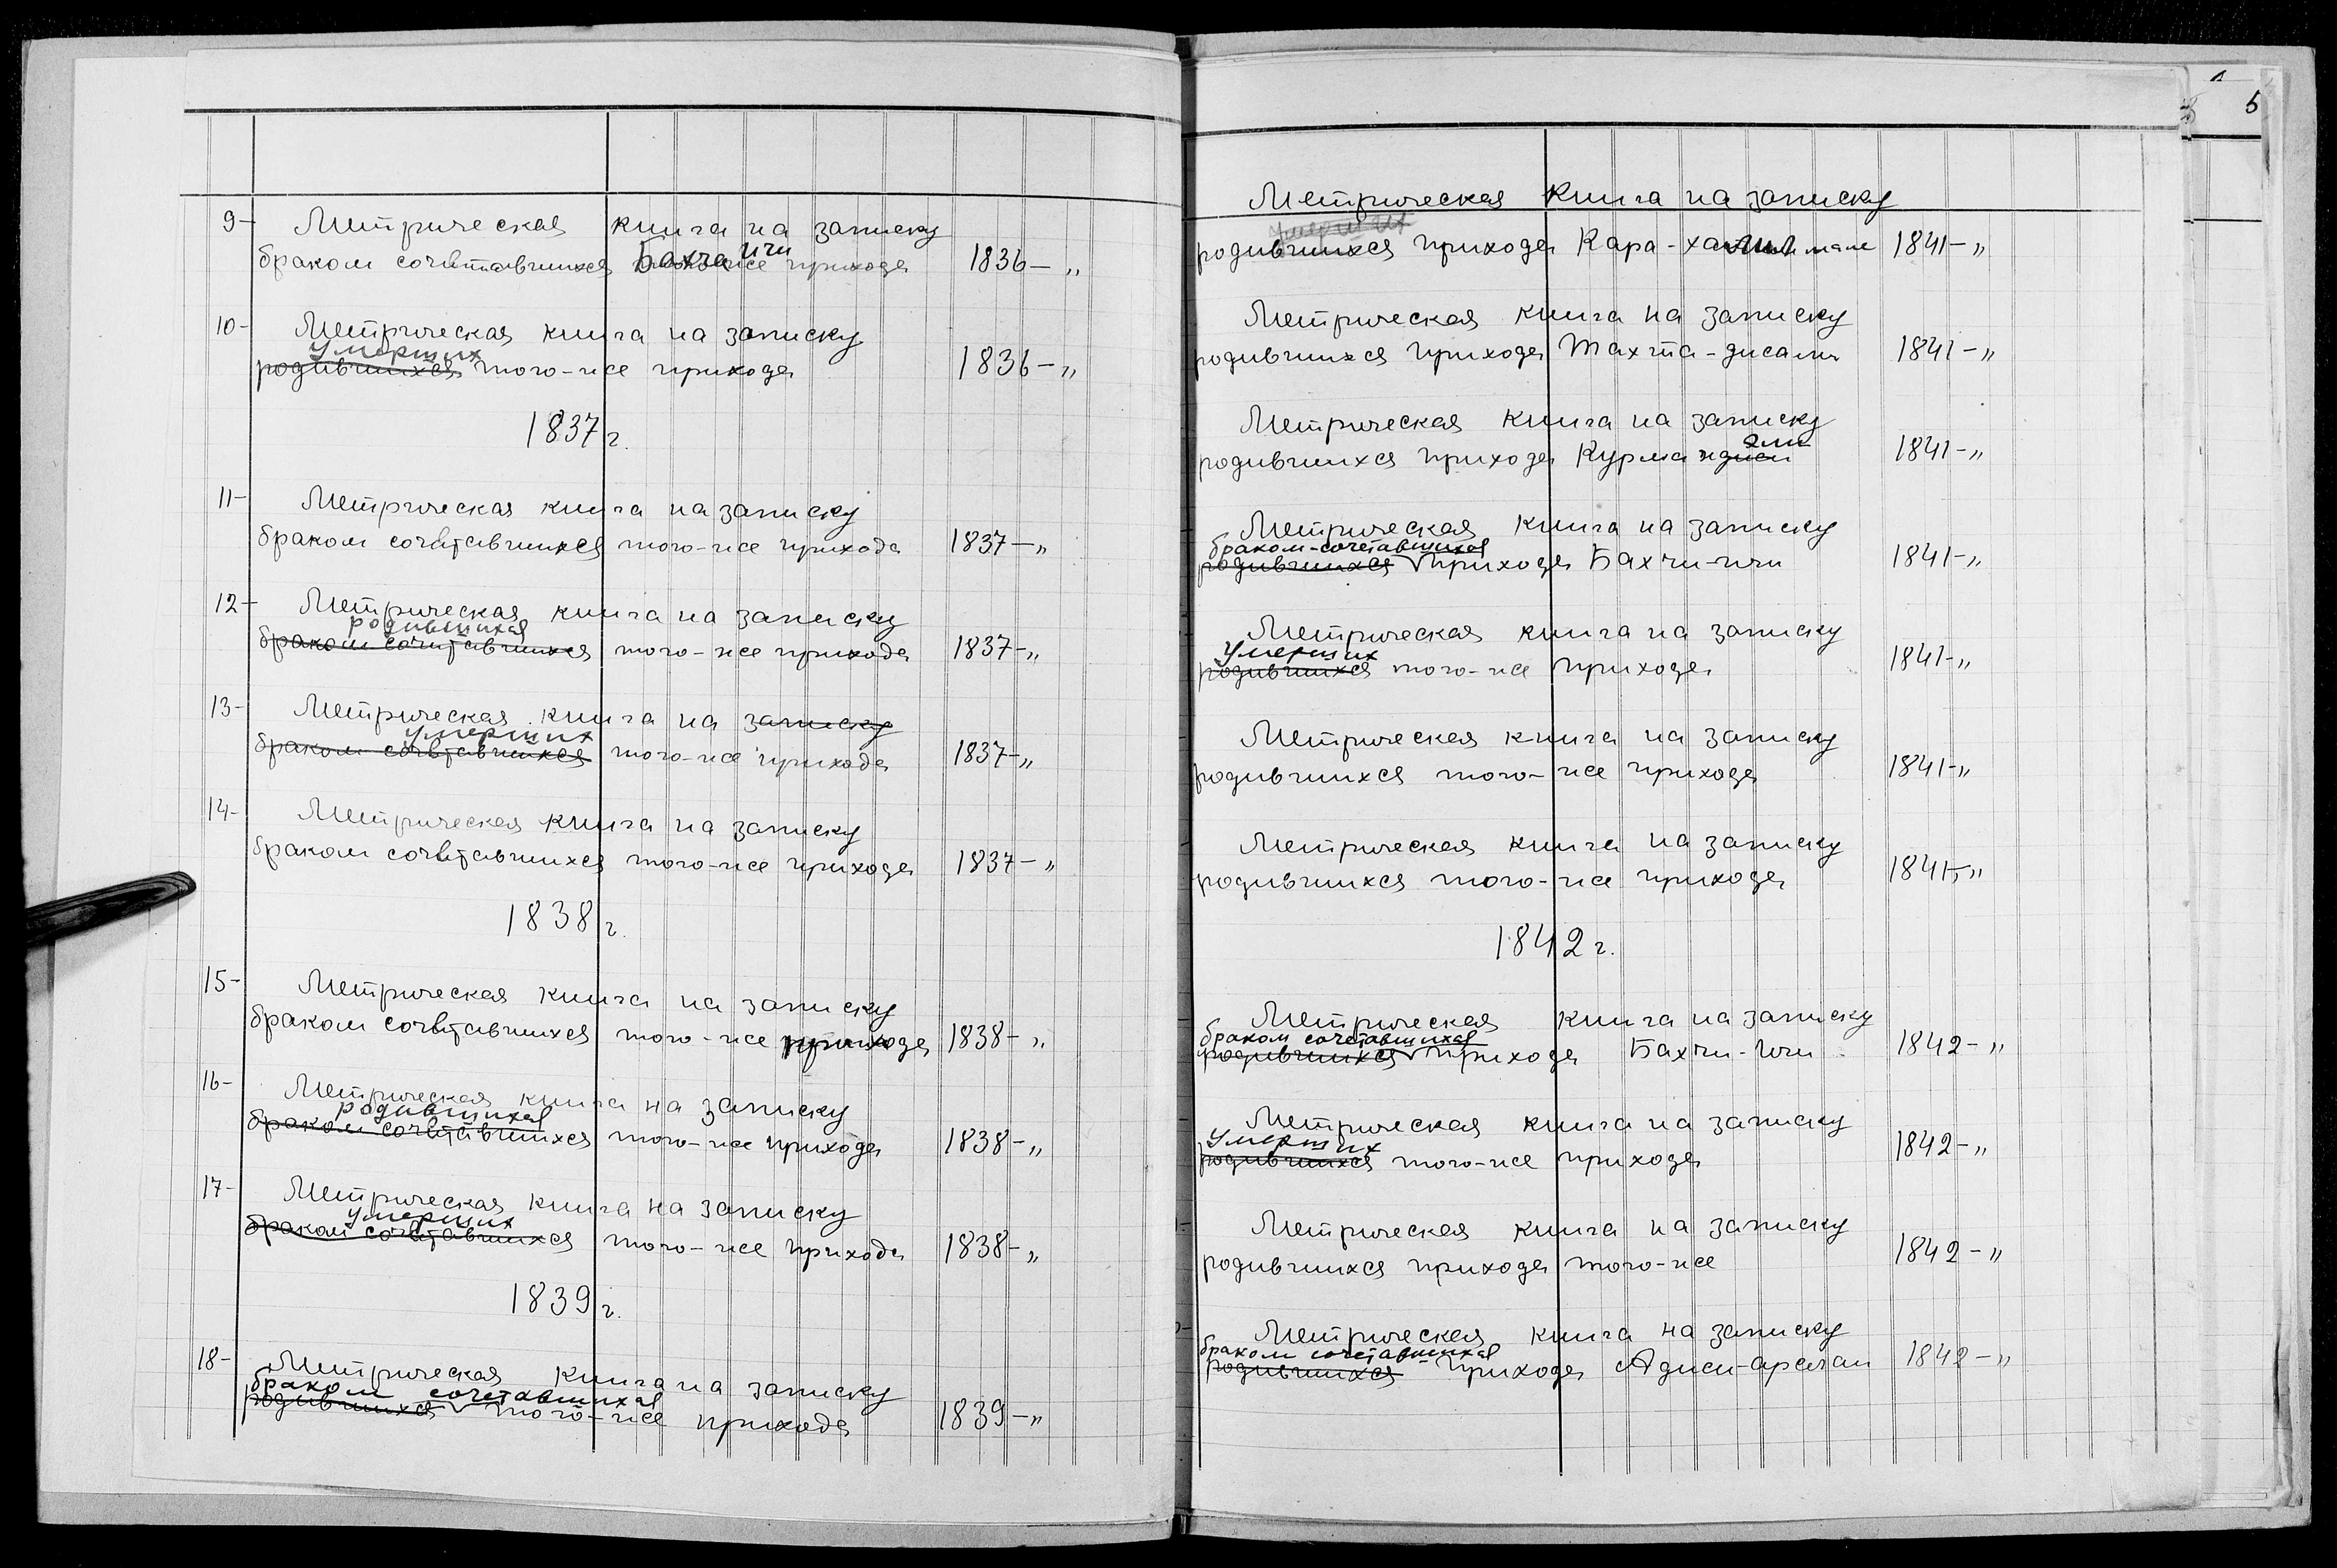 9- Метрическая книга на записку
браком сочетавшихся Бахчаичи прихода 1836-"
10- Метрическая книга на записку
умерших
родившихся того-же прихода 1836-"
1837г.
11- Метрическая книга на записку
браком сочетавшихся того-же прихода 1837-"
12- Метрическая книга на записку
родившихся
браком сочетавшихся того-же прихода 1837-"
13- Метрическая книга на записку
умерших
браком сочетавшихся того-же прихода 1837-"
14- Метрическая книга на записку
браком сочетавшихся того-же прихода 1837-"
1838г.
15- Метрическая книга на записку
браком сочетавшихся того-же прихода 1838-"
16- Метрическая книга на записку
родившихся
браком сочетавшихся того-же прихода 1838-"
17- Метрическая книга на записку
умерших
браком сочетавшихся того-же прихода 1838-"
1839г.
18- Метрическая книга на записку
браком сочетавшихся
родившихся того-же прихода 1839-"
5
Метрическая книга на записку
умерших
родившихся прихода Кара- 1841-"
Метрическая книга на записку
родившихся прихода Тахта-джами 1841-"
Метрическая книга на записку
родившихся прихода 1841-"
Метрическая книга на записку
браком-сочетавшихся
родившихся прихода Бахчи-ичи 1841-"
Метрическая книга на записку
умерших
родившихся того-же прихода 1841-"
Метрическая книга на записку
родившихся того-же прихода 1841-"
Метрическая книга на записку
родившихся того-же прихода 1841-"
1842г.
Метрическая книга на записку
браком сочетавшихся
родившихся прихода Бахчи-Ичи 1842-"
Метрическая книга на записку
умерших
родившихся того-же прихода 1842-"
Метрическая книга на записку
родившихся прихода того-же 1842-"
Метрическая книга на записку
браком сочетавшихся
родившихся прихода Аджи-арслан 1842-"